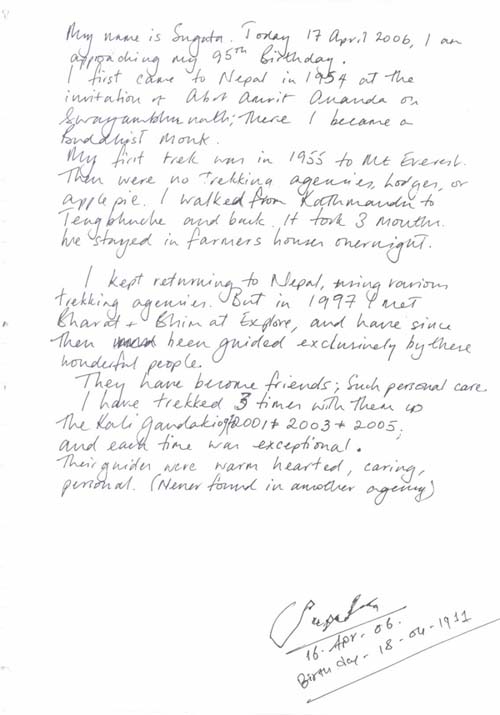 My name is Sugata. Today 17 April 2006, I am
approaching my 95th Birthday.
I first came to Nepal in 1954 at the
invitation of Abot Amrit Ananda on
Swayambhunath; There I became a
Buddhist Monk.
My first trek was in 1955 to Mt Everest.
Then were no trekking agencies, Lodges, or
apple pie. I walked from Kathmandu to
Tengbhuche and back. It took 3 months.
We stayed in farmers houses overnight.
I kept returning to Nepal, using various
trekking agencies. But in 1997 I met
Bharat + Bhim at Explore, and have since
then been guided exclusively by these
wonderful people.
They have become friends; Such personal care.
I have trekked 3 times with them up
The Kali Gandaki 2001 + 2003 + 2005;
and each time was exceptional.
Their guides were warm hearted, caring,
personal. (Never found in another agency)
Sugata
16. Apr. 06.
Birth day - 18-04-1911